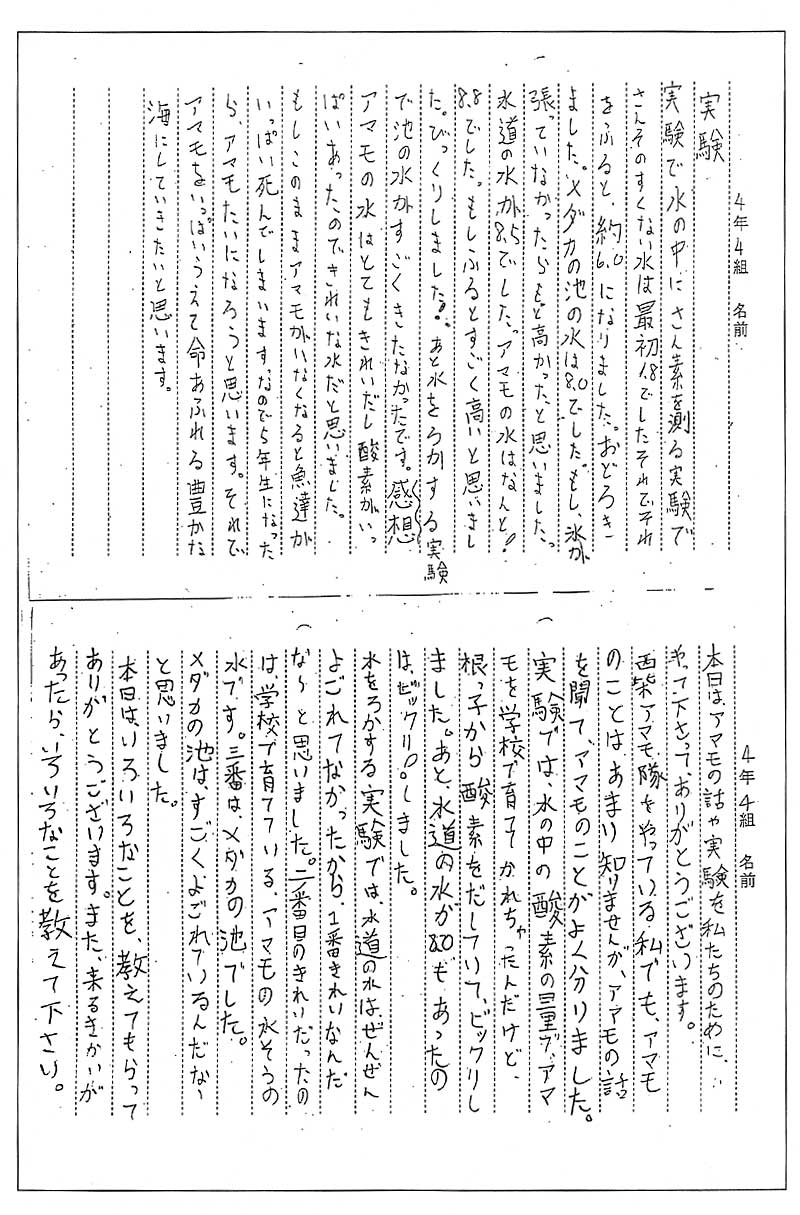 4年4組　名前
実験
実験で水の中にさん素を測る実験で
さんそのすくない水は最初1.8でしたそれでそれ
をふると、約6.0になりました。おどろき
ました。メダカの池の水は8.0でした。もし、氷が
張っていなかったらもと高かったと思いました。
水道の水が8.5でした。アマモの水はなんと!
8.8でした。もしふるとすごく高いと思いまし
た。びっくりしました!あと水をろかする実験
で池の水がすごくきたなかったです。感想
アマモの水はとてもきれいだし酸素がいっ
ぱいあったのできれいな水だと思いました。
もしこのままアマモがいなくなると魚達が
いっぱい死んでしまいます。なので5年生になった
ら、アマモたいになろうと思います。それで
アマモをいっぱいうえて命あふれる豊かな
海にしていきたいと思います。
4年4組　名前
本日は、アマモの話や実験を私たちのために、
やって下さって、ありがとうございます。
西柴アマモ隊をやっている私でも、アマモ
のことはあまり知りませんが、アマモの話
を聞て、アマモのことがよく分りました。
実験では、水の中の酸素の量で、アマ
モを学校で育てかれちゃったんだけど、
根っ子から酸素をだしていて、ビックリし
ました。あと、水道の水が8.20もあったの
は、ビックリ!しました。
水をろかする実験では、水道の水は、ぜんぜん
よごれてなかったから、1番きれいなんだ
な〜と思いました。二番目のきれいだったの
は、学校で育てている、アマモの水そうの
水です。三番は、メダカの池でした。
メダカの池は、すごくよごれているんだな〜
と思いました。
本日はいろいろなことを、教えてもらって
ありがとうございます。また、来るきかいが
あったら、いろいろなことを教えて下さい。